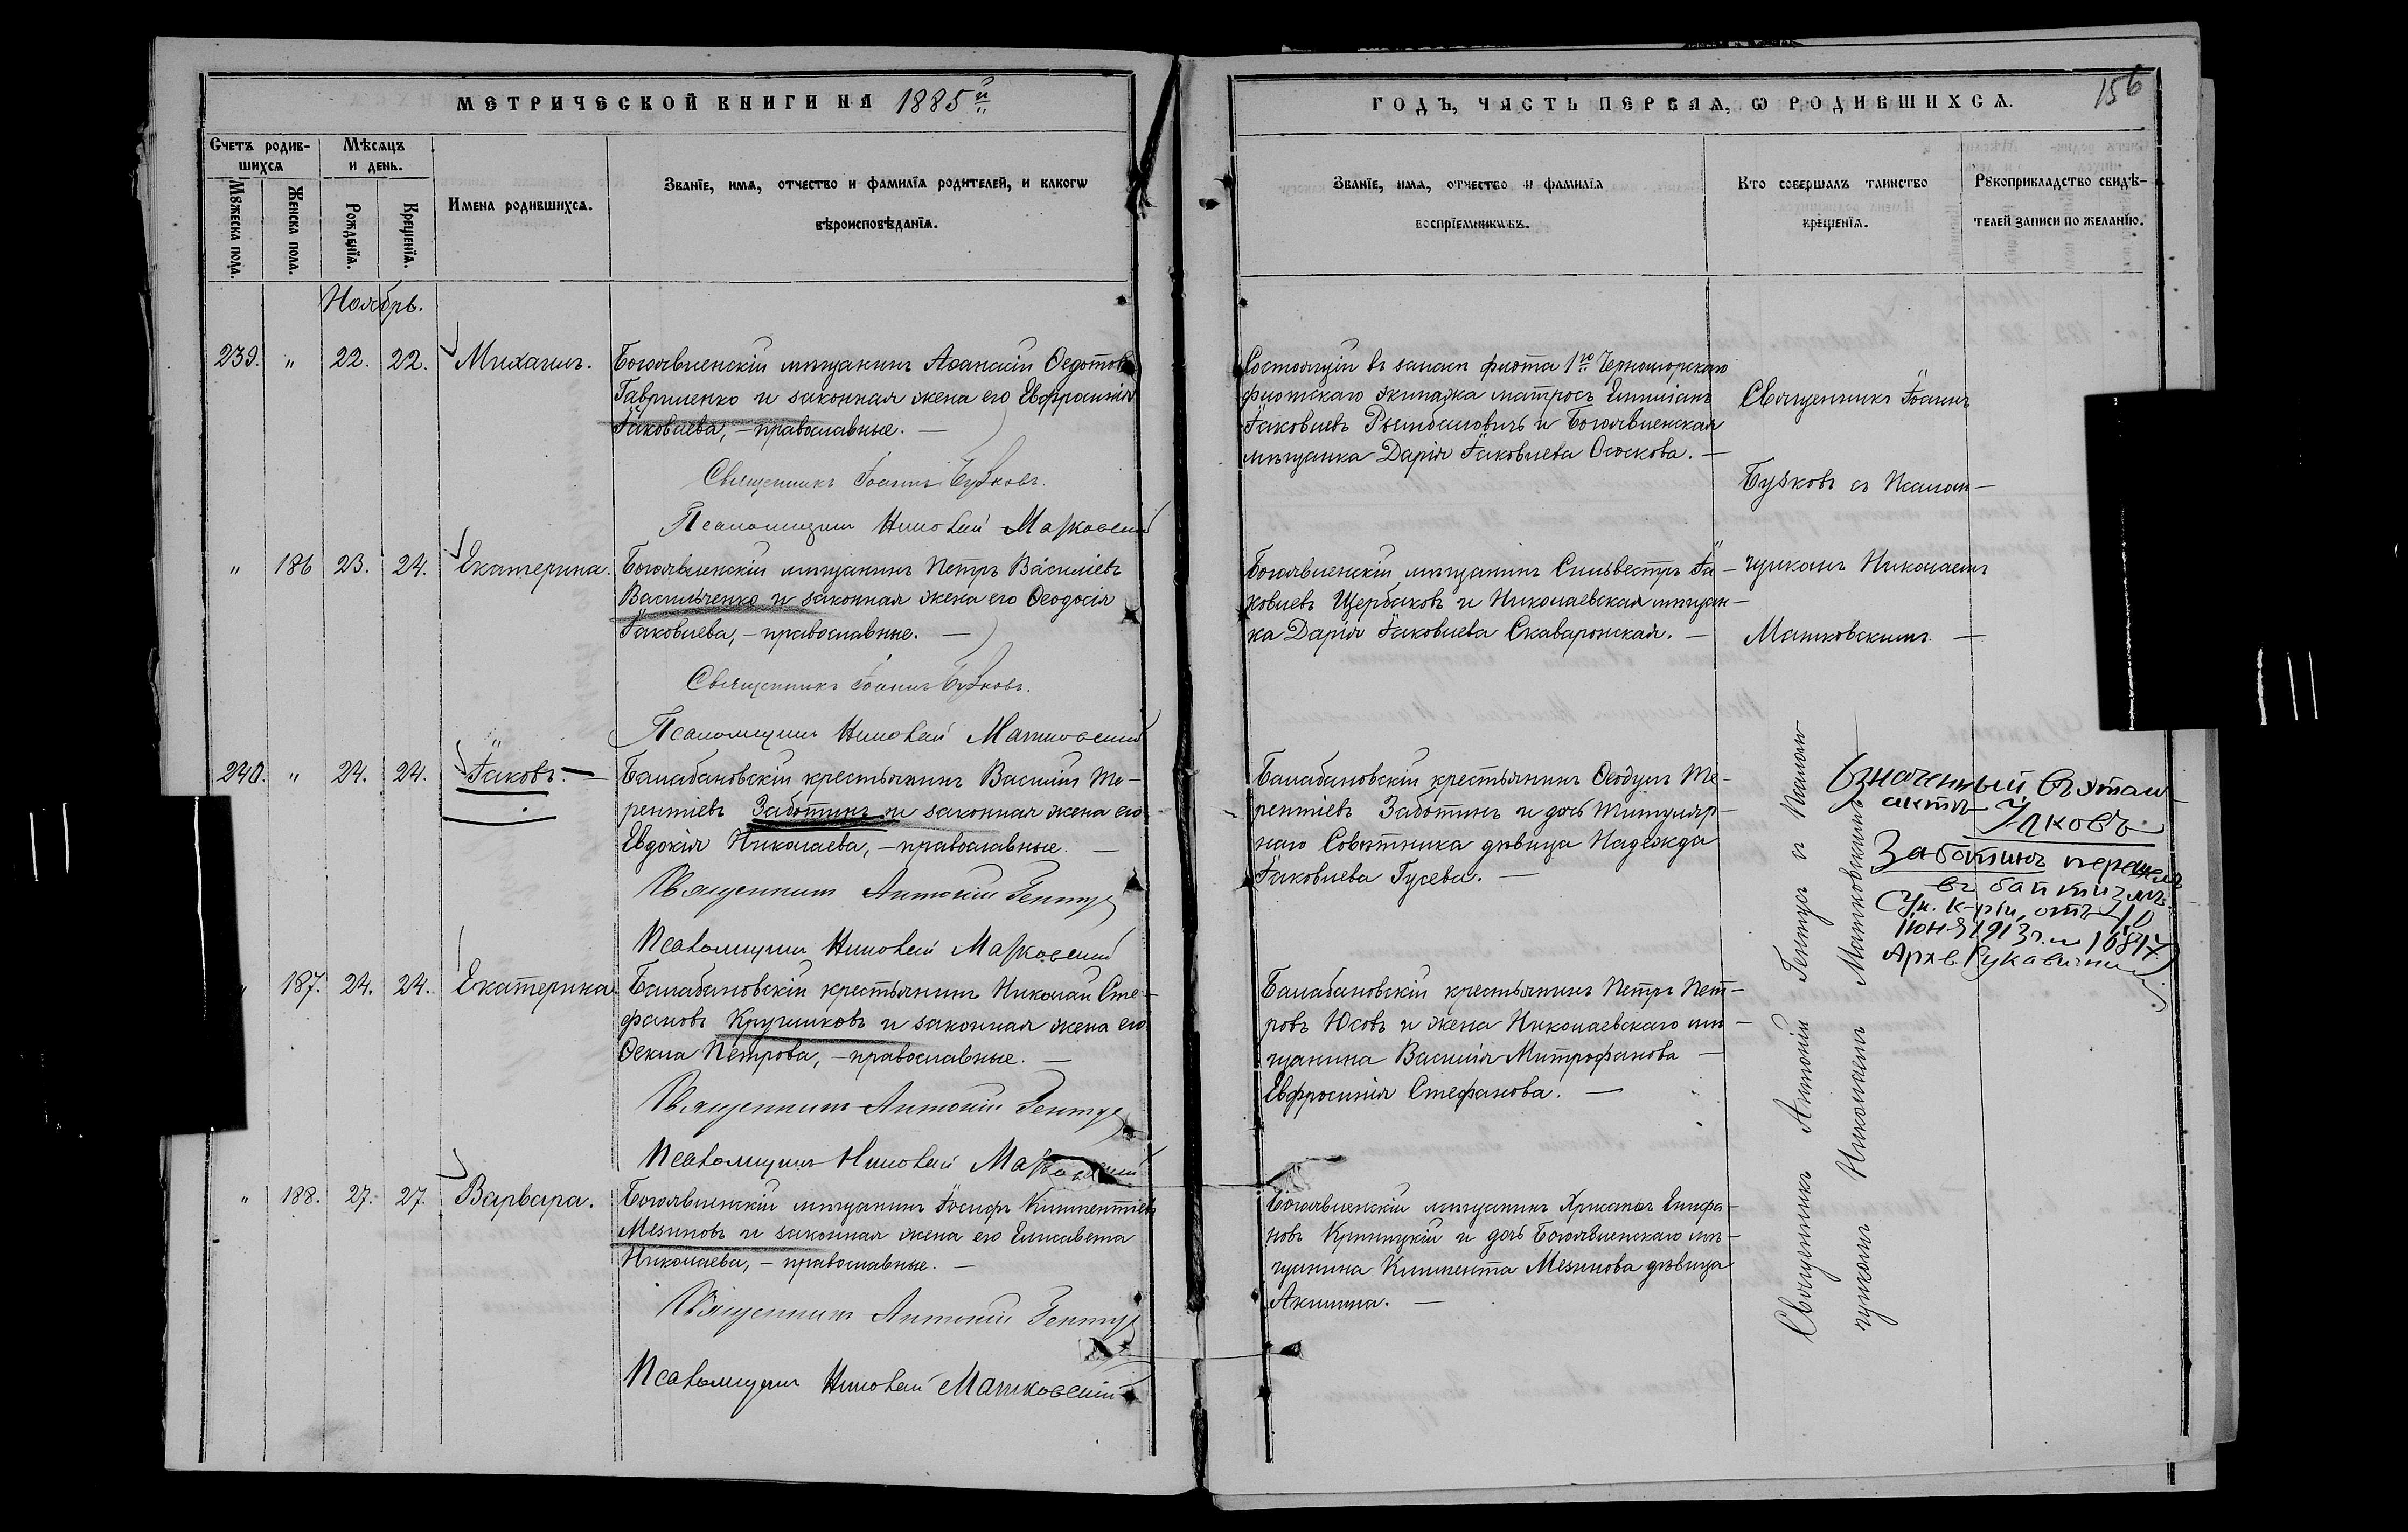 МЕТРИЧЕСКОЙ КНИГИ НА 1885й
ГОДЪ, ЧАСТЬ ПЕРВАЯ, Ѡ РОДИВШИХСѦ.
156
Счетъ родив-
шихсѧ
Мѣсѧцъ
и день.
Мꙋжеска пола.
Женска пола.
Рожденїѧ.
Крещенїѧ.
Имена родившихсѧ.
Званїе, имѧ, отчество и фамилїѧ родителей, и какогѡ
вѣроисповѣданїѧ.
Званїе, имѧ, отчество и фамилїѧ
воспрїемникѡвъ.
Кто совершалъ таинство
крещенїѧ.
Рꙋкоприкладство свидѣ-
телей записи по желанїю.
Ноябрь.
239. „ 22. 22. Михаилъ.
Богоявленскій мѣщанинъ Аѳанасій Ѳедотовъ
Гавриленко и законная жена его Евфросинія
Іаковлева, – православные. –
Священникъ Іоаннъ Бузковъ.
Псаломщикъ Николай Матковскій
Состоящій въ запасѣ флота 1го Черноморскаго
флотскаго экипажа матросъ Емиліанъ
Іаковлевъ Рымбаловичъ и Богоявленская
мѣщанка Дарія Іаковлева Ососкова. –
Священникъ Іоаннъ
Бузковъ съ Псалом-
щикомъ Николаемъ
Матковскимъ. –
„ 186 23. 24. Екатерина.
Богоявленскій мѣщанинъ Петръ Васильевъ
Васильченко и законная жена его Ѳеодосія
Іаковлева, – православные. –
Священникъ Іоаннъ Бузковъ.
Псаломщикъ Николай Матковскій
Богоявленскій мѣщанинъ Сильвестръ Іа-
ковлевъ Щербаковъ и Николаевская мѣщан-
ка Дарія Іаковлева Скаваронская. –
240. „ 24. 24. Іаковъ. –
Балабановскій крестьянинъ Василій Те-
рентіевъ Заботинъ и законная жена его
Евдокія Николаева, – православные. –
Священникъ Антоній Гентуз
Псаломщикъ Николай Матковскій
Балабановскій крестьянинъ Ѳеодулъ Те-
рентіевъ Заботинъ и дочь титуляр-
наго Совѣтника дѣвица Надежда
Іаковлева Гусева. –
Священникъ Антоній Гентуз съ Псалом-
щикомъ Николаемъ Матковскимъ
Означенный въ этом
актѣ Іаковъ
Заботинъ перешелъ
въ баптизмъ.
Ук. К-ріи, отъ 10
Іюня 1913 г. №
„ 187. 24. 24. Екатерина
Балабановскій крестьянинъ Николай Сте-
фановъ Кругликовъ и законная жена его
Ѳекла Петрова, – православные. –
Священникъ Антоній Гентуз
Псаломщикъ Николай Матковскій
Балабановскій крестьянинъ Петръ Пет-
ровъ Юсовъ и жена Николаевскаго мѣ-
щанина Василія Митрофанова –
Евфросинія Стефанова. –
„ 188. 27. 27. Варвара.
Богоявленскій мѣщанинъ Іосифъ Климентіевъ
Мезиновъ и законная жена его Елисавета
Николаева, – православные. –
Священникъ Антоній Гентуз
Псаломщикъ Николай Матковскій
Богоявленскій мѣщанинъ Хрисанѳъ Епифа-
новъ Криницкій и дочь Богоявленскаго мѣ-
щанина Климента Мезинова дѣвица
Акилина. –